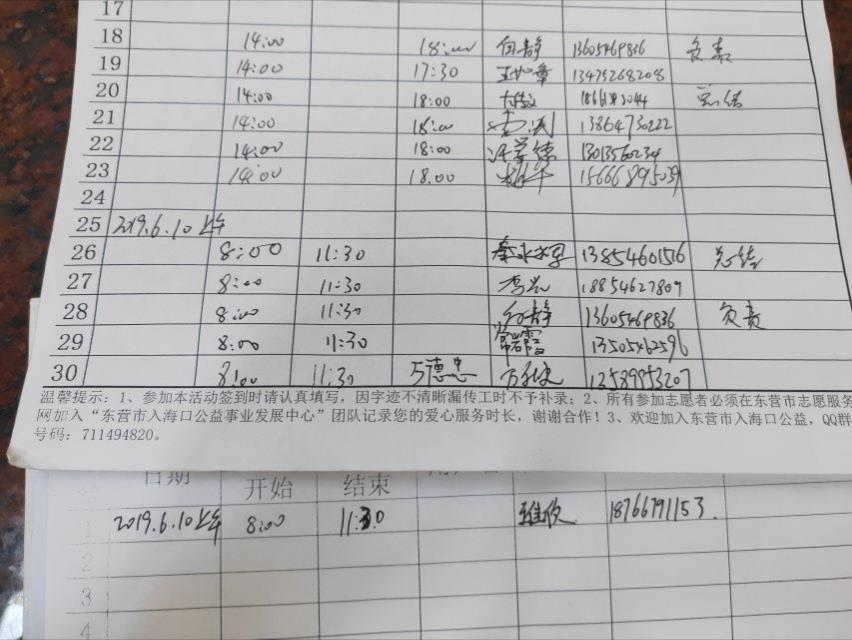 17
18 14:00 18:00 何静 13605469836 负责
19 14:00 17:30 13475268208
20 14:00 18:00 总结
21 14:00 18:00 13864730222
22 14:00 18:00 13013560234
23 14:00 18:00 15666895039
24
25 2019.6.10上午
26 8:00 11:30 13854601516 总结
27 8:00 11:30 李亮 18854627809
28 8:00 11:30 何静 13605469836 负责
29 8:00 11:30 常岩霞 13505462596
30 8:00 11:30 13589953207
温馨提示：1、参加本活动签到时请认真填写，因字迹不清晰漏传工时不予补录；2、所有参加志愿者必须在东营市志愿服务
网加入“东营市入海口公益事业发展中心”团队记录您的爱心服务时长，谢谢合作！3、欢迎加入东营市入海口公益，QQ群
号码：711494820。
日期 开始 结束
1 2019.6.10上午 8:00 11:30 18766791153.
2
3
4